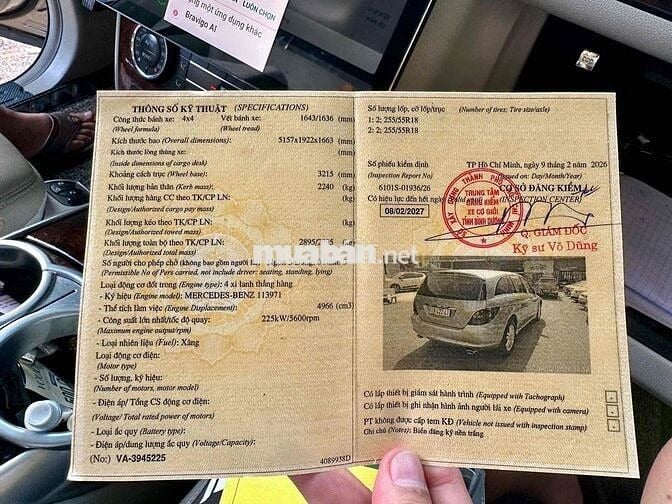 LUÔN CHỌN
ng một ứng dụng khác
Bravigo AI
THÔNG SỐ KỸ THUẬT (SPECIFICATIONS)
Công thức bánh xe: 4x4 Vết bánh xe: 1643/1636 (mm)
(Wheel formula) (Wheel tread)
Kích thước bao (Overall dimensions): 5157x1922x1663 (mm)
Kích thước lòng thùng xe: (mm)
(Inside dimensions of cargo desk)
Khoảng cách trục (Wheel base): 3215 (mm)
Khối lượng bản thân (Kerb mass): 2240 (kg)
Khối lượng hàng CC theo TK/CP LN: (kg)
(Design/Authorized cargo pay mass)
Khối lượng kéo theo TK/CP LN: (kg)
(Design/Authorized towed mass)
Khối lượng toàn bộ theo TK/CP LN: 2895/ (kg)
(Design/Authorized total mass)
Số người cho phép chở (không bao gồm người lái,
(Permissible No of Pers carried, not include driver: seating, standing, lying)
Loại động cơ đốt trong (Engine type): 4 xi lanh thẳng hàng
- Ký hiệu (Engine model): MERCEDES-BENZ 113971
- Thể tích làm việc (Engine Displacement): 4966 (cm3)
- Công suất lớn nhất/tốc độ quay: 225kW/5600rpm
(Maximum engine output/rpm)
- Loại nhiên liệu (Fuel): Xăng
Loại động cơ điện:
(Motor type)
- Số lượng, ký hiệu:
(Number of motors, motor model)
- Điện áp/ Tổng CS động cơ điện:
(Voltage/ Total rated power of motors)
- Loại ắc quy (Battery type):
- Điện áp/dung lượng ắc quy (Voltage/Capacity):
(No:) VA-3945225
4089938D
Số lượng lốp, cỡ lốp/trục (Number of tires; Tire size/axle)
1: 2; 255/55R18
2: 2; 255/55R18
Số phiếu kiểm định TP Hồ Chí Minh, ngày 9 tháng 2 năm 2026
(Inspection Report No) Issued on: Day/Month/Year)
6101S-01936/26 CƠ SỞ ĐĂNG KIỂM
Có hiệu lực đến hết ngày (INSPECTION CENTER)
08/02/2027
(Day/Month/Year)
TRUNG TÂM
ĐĂNG KIỂM
XE CƠ GIỚI
TỈNH BÌNH DƯƠNG
Q. GIÁM ĐỐC
Kỹ sư Võ Dũng
muaban.net
Có lắp thiết bị giám sát hành trình (Equipped with Tachograph)
Có lắp thiết bị ghi nhận hình ảnh người lái xe (Equipped with camera)
PT không được cấp tem KĐ (Vehicle not issued with inspection stamp)
Ghi chú (Notes): Biển đăng ký nền trắng